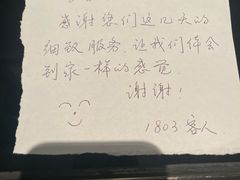 感谢您们这几天的
细致服务，让我们体会
到家一样的感觉
谢谢！
1803 客人